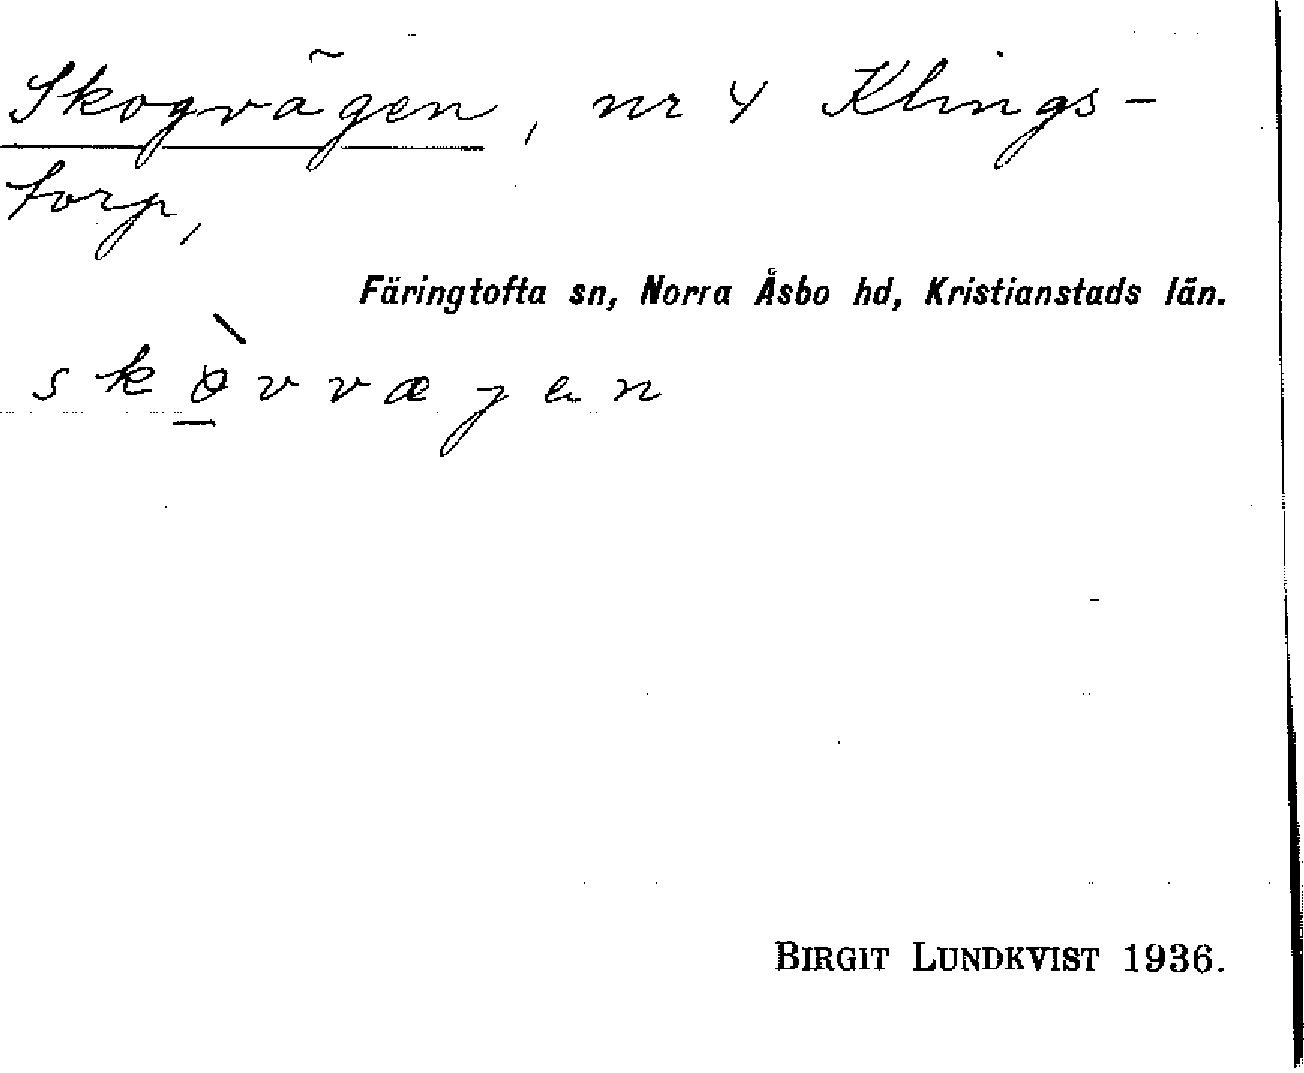 Skogvägen, nr 4 Klings-
torp,
Färingtofta sn, Norra Åsbo hd, Kristianstads län.
skòvvægen
BIRGIT LUNDKVIST 1936.